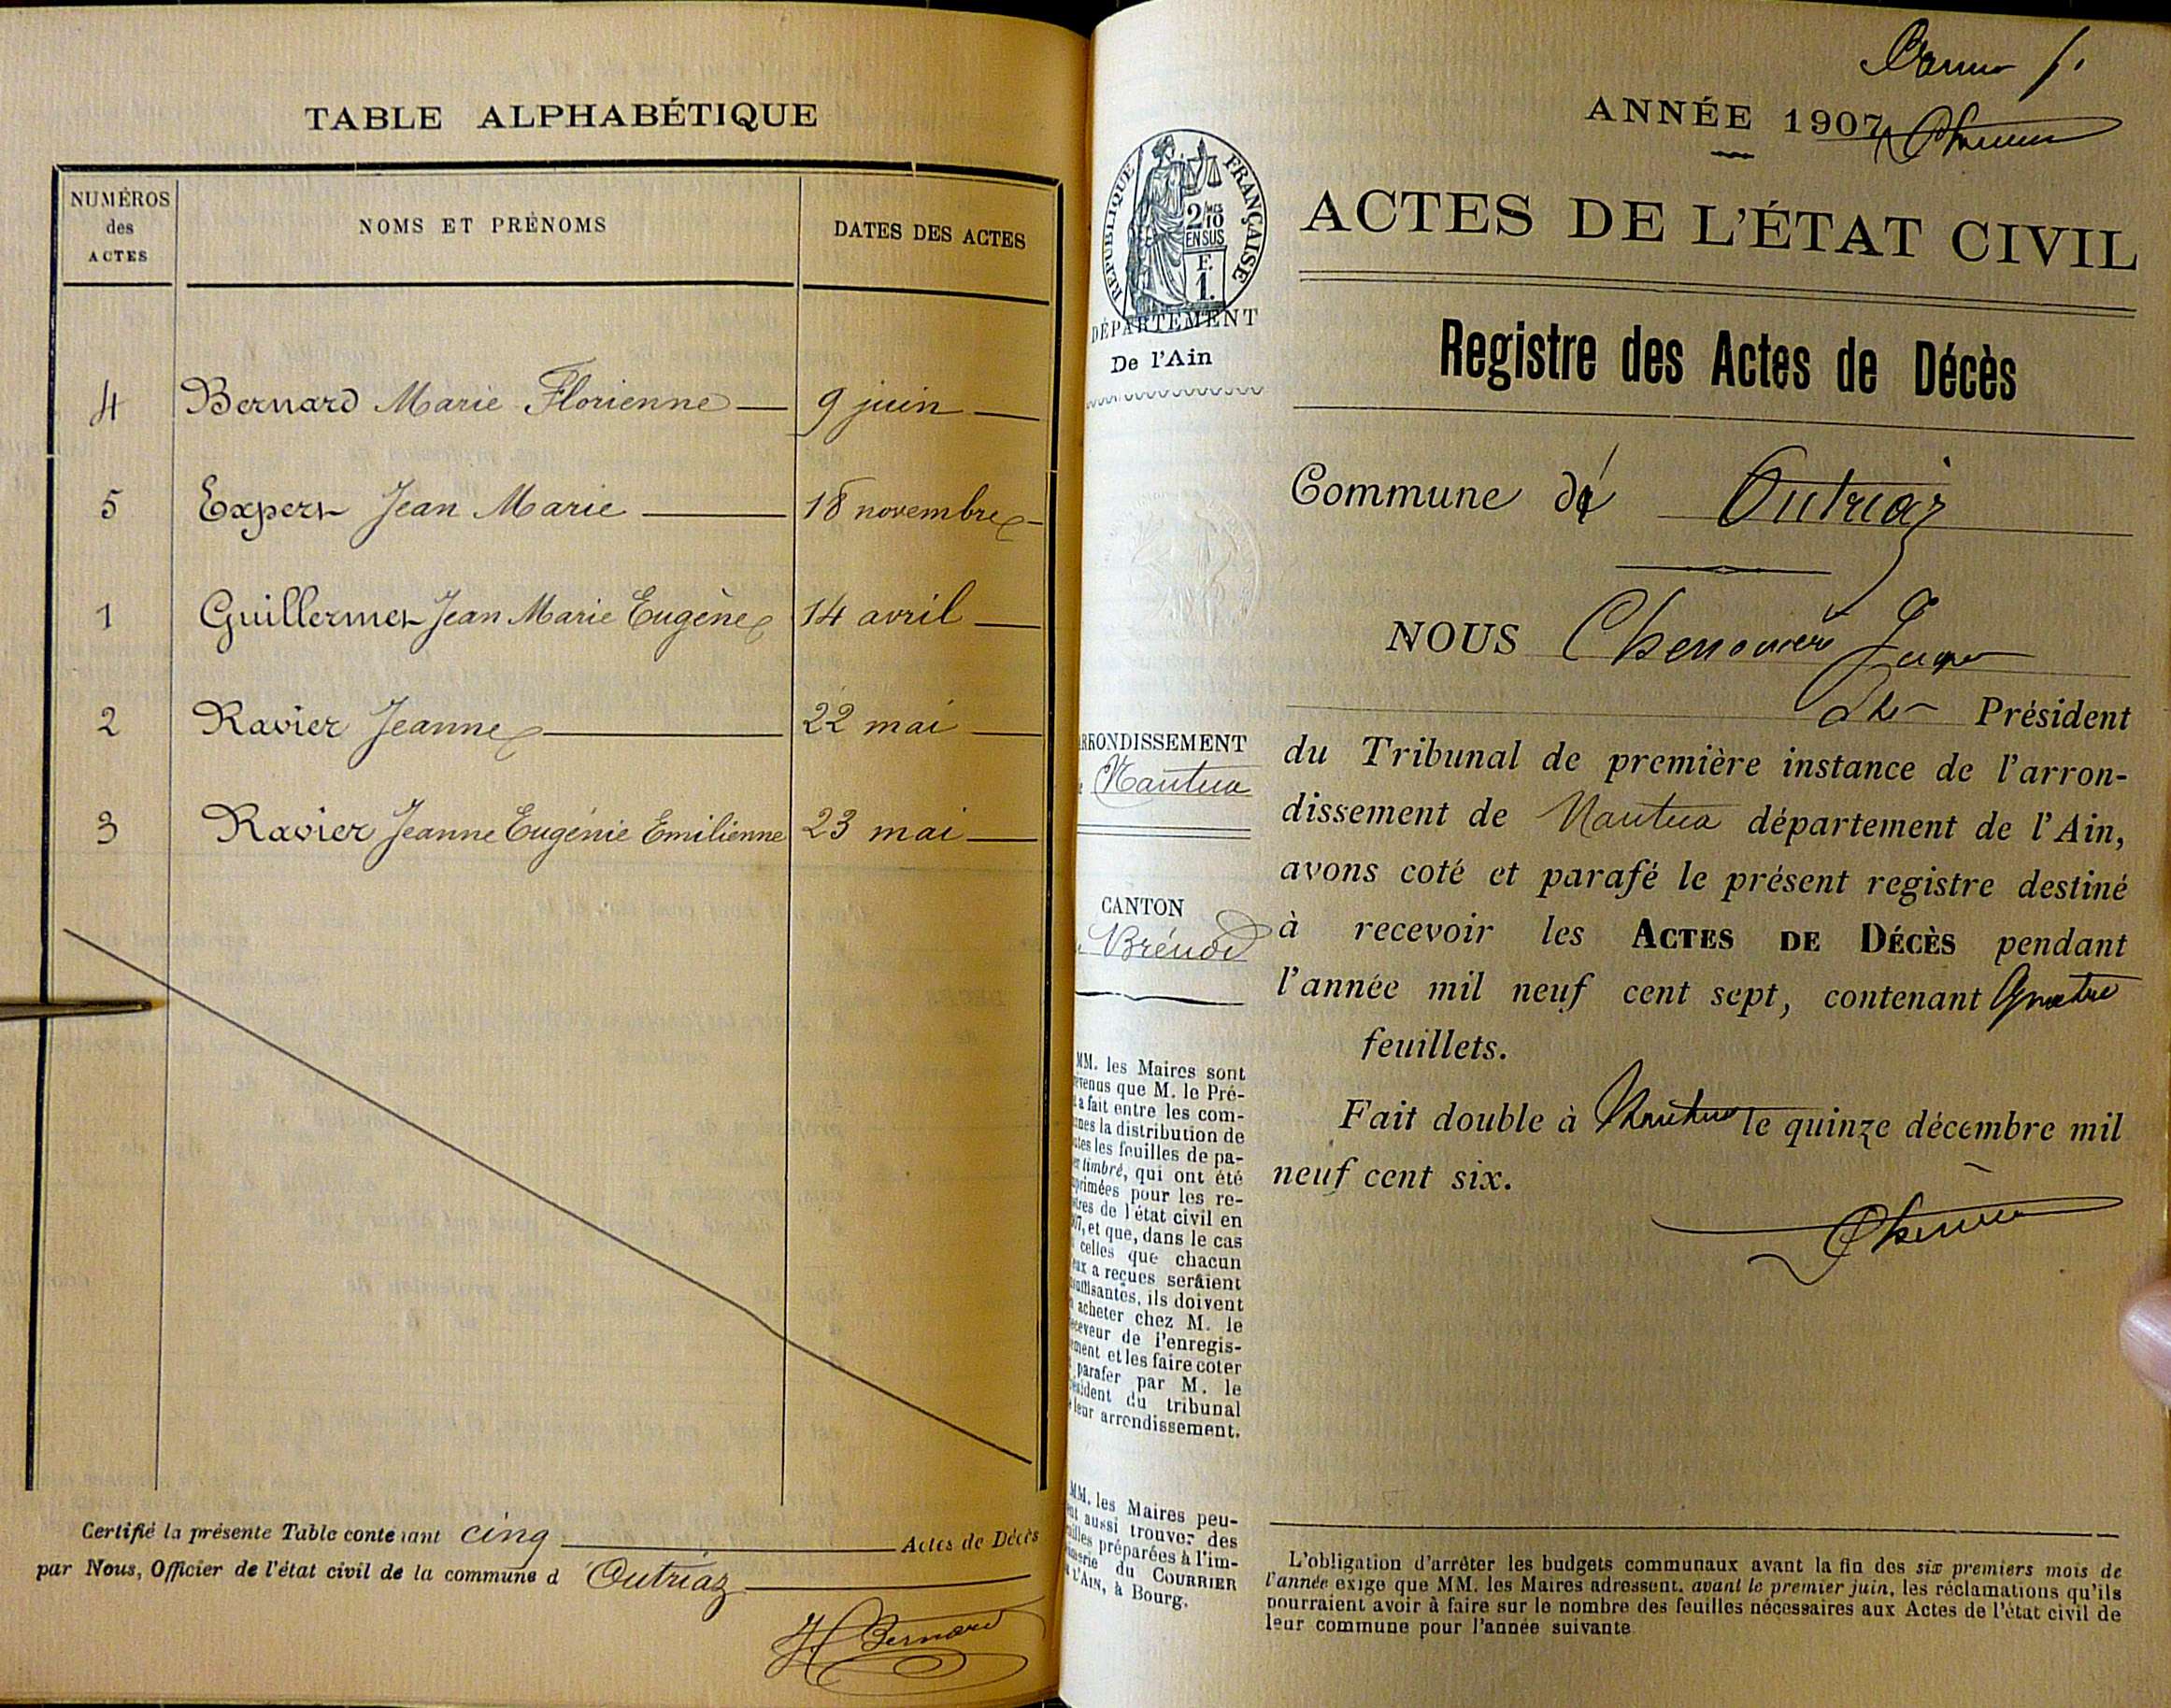 TABLE ALPHABÉTIQUE
NUMÉROS
des
ACTES
NOMS ET PRÉNOMS
DATES DES ACTES
4 Bernard Marie Florienne 9 juin
5 Expert Jean Marie 18 novembre
1 Guillermet Jean Marie Eugène 14 avril
2 Ravier Jeanne 22 mai
3 Ravier Jeanne Eugénie Emilienne 23 mai
Certifié la présente Table contenant cinq Actes de Décès
par Nous, Officier de l'état civil de la commune d'Outriaz
H Bernard
ANNÉE 1907
RÉPUBLIQUE FRANÇAISE
2/10 MES
EN SUS
F.
1.
DÉPARTEMENT
De l'Ain
ARRONDISSEMENT
Nantua
CANTON
Brénod
MM. les Maires sont
prévenus que M. le Pré-
a fait entre les com-
munes la distribution de
toutes les feuilles de pa-
timbré, qui ont été
imprimées pour les re-
gistres de l'état civil en
et que, dans le cas
celles que chacun
d'eux a reçues seraient
insuffisantes, ils doivent
acheter chez M. le
receveur de l'enregis-
trement et les faire coter
parafer par M. le
président du tribunal
leur arrondissement.
MM. les Maires peu-
vent aussi trouver des
feuilles préparées à l'im-
primerie du COURRIER
L'AIN, à Bourg.
ACTES DE L'ÉTAT CIVIL
Registre des Actes de Décès
Commune d' Outriaz
NOUS
Président
du Tribunal de première instance de l'arron-
dissement de Nantua département de l'Ain,
avons coté et parafé le présent registre destiné
à recevoir les ACTES DE DÉCÈS pendant
l'année mil neuf cent sept, contenant Quatre
feuillets.
Fait double à Nantua le quinze décembre mil
neuf cent six.
L'obligation d'arrêter les budgets communaux avant la fin des six premiers mois de
l'année exige que MM. les Maires adressent, avant le premier juin, les réclamations qu'ils
pourraient avoir à faire sur le nombre des feuilles nécessaires aux Actes de l'état civil de
leur commune pour l'année suivante